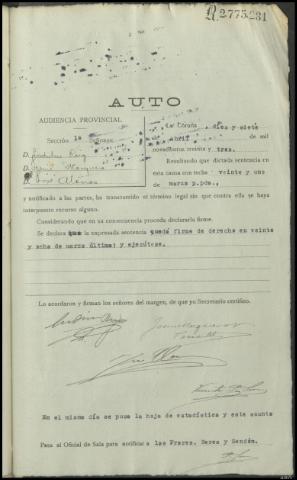 R.2775.231
AUTO
AUDIENCIA PROVINCIAL
Sección 1ª
La Coruña, diez y siete
D.
de abril de mil
D.
novecientos treinta y tres.
D.
Resultando que dictada sentencia en
esta causa con fecha veinte y uno
de marzo p.pdo.,
y notificado a las partes, ha transcurrido el término legal sin que contra ella se haya
interpuesto recurso alguno.
Considerando que en su consecuencia procede declararlo firme.
Se declara que la expresada sentencia quedó firme de derecho en veinte
y ocho de marzo último; y ejecútese.
Lo acordaron y firman los señores del margen, de que yo Secretario certifico.
En el mismo día se puso la hoja de estadística y este asunto
Pasa al Oficial de Sala para notificar a los Prores.